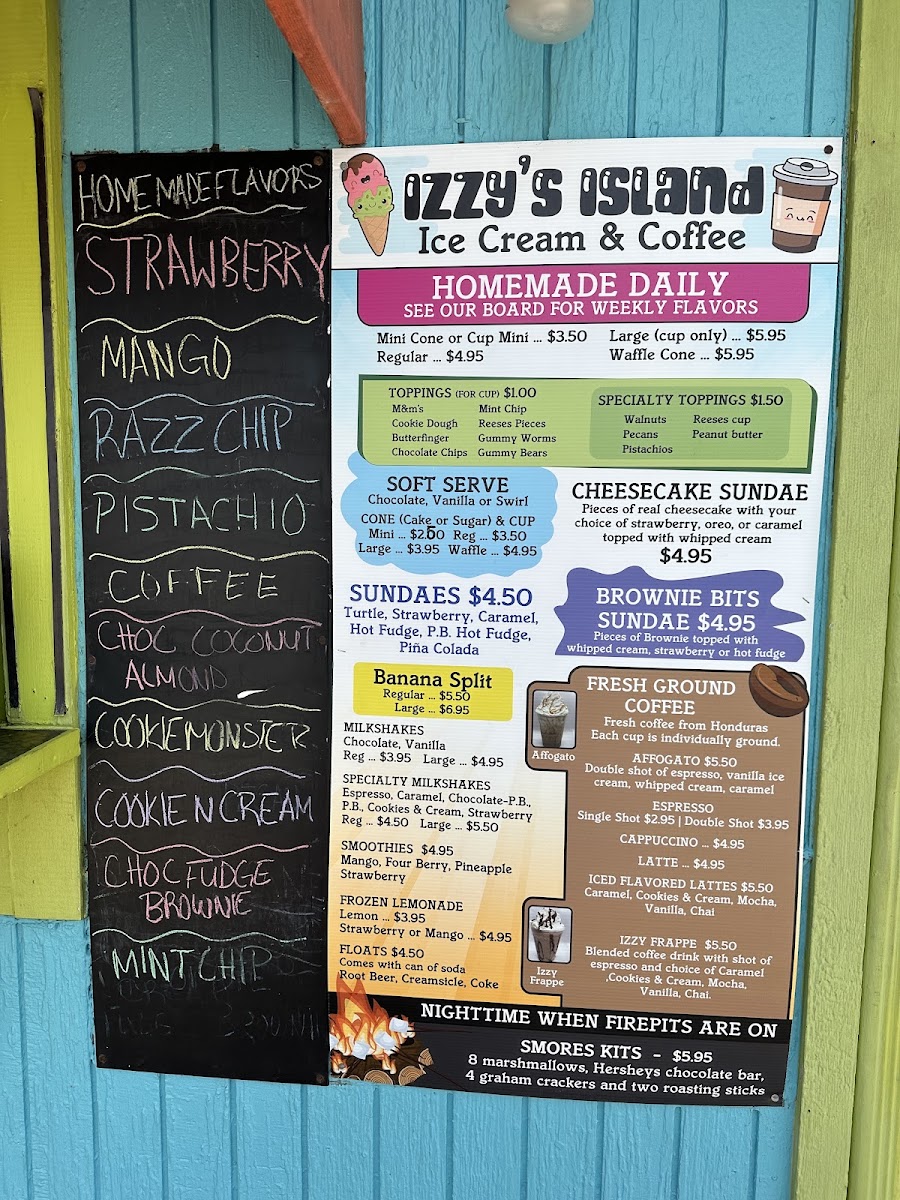 HOMEMADE FLAVORS
STRAWBERRY
MANGO
RAZZ CHIP
PISTACHIO
COFFEE
CHOC COCONUT
ALMOND
COOKIE MONSTER
COOKIE N CREAM
CHOC FUDGE
BROWNIE
MINT CHIP
IZZY'S ISLAND
Ice Cream & Coffee
HOMEMADE DAILY
SEE OUR BOARD FOR WEEKLY FLAVORS
Mini Cone or Cup Mini ... $3.50 Large (cup only) ... $5.95
Regular ... $4.95 Waffle Cone ... $5.95
TOPPINGS (FOR CUP) $1.00
M&m's Mint Chip
Cookie Dough Reeses Pieces
Butterfinger Gummy Worms
Chocolate Chips Gummy Bears
SPECIALTY TOPPINGS $1.50
Walnuts Reeses cup
Pecans Peanut butter
Pistachios
SOFT SERVE
Chocolate, Vanilla or Swirl
CONE (Cake or Sugar) & CUP
Mini ... $2.50 Reg ... $3.50
Large ... $3.95 Waffle ... $4.95
CHEESECAKE SUNDAE
Pieces of real cheesecake with your
choice of strawberry, oreo, or caramel
topped with whipped cream
$4.95
SUNDAES $4.50
Turtle, Strawberry, Caramel,
Hot Fudge, P.B. Hot Fudge,
Piña Colada
BROWNIE BITS
SUNDAE $4.95
Pieces of Brownie topped with
whipped cream, strawberry or hot fudge
Banana Split
Regular ... $5.50
Large ... $6.95
MILKSHAKES
Chocolate, Vanilla
Reg ... $3.95 Large ... $4.95
SPECIALTY MILKSHAKES
Espresso, Caramel, Chocolate-P.B.,
P.B., Cookies & Cream, Strawberry
Reg ... $4.50 Large ... $5.50
SMOOTHIES $4.95
Mango, Four Berry, Pineapple
Strawberry
FROZEN LEMONADE
Lemon ... $3.95
Strawberry or Mango ... $4.95
FLOATS $4.50
Comes with can of soda
Root Beer, Creamsicle, Coke
Affogato
FRESH GROUND
COFFEE
Fresh coffee from Honduras
Each cup is individually ground.
AFFOGATO $5.50
Double shot of espresso, vanilla ice
cream, whipped cream, caramel
ESPRESSO
Single Shot $2.95 | Double Shot $3.95
CAPPUCCINO ... $4.95
LATTE ... $4.95
ICED FLAVORED LATTES $5.50
Caramel, Cookies & Cream, Mocha,
Vanilla, Chai
Izzy
Frappe
IZZY FRAPPE $5.50
Blended coffee drink with shot of
espresso and choice of Caramel
,Cookies & Cream, Mocha,
Vanilla, Chai.
NIGHTTIME WHEN FIREPITS ARE ON
SMORES KITS - $5.95
8 marshmallows, Hersheys chocolate bar,
4 graham crackers and two roasting sticks